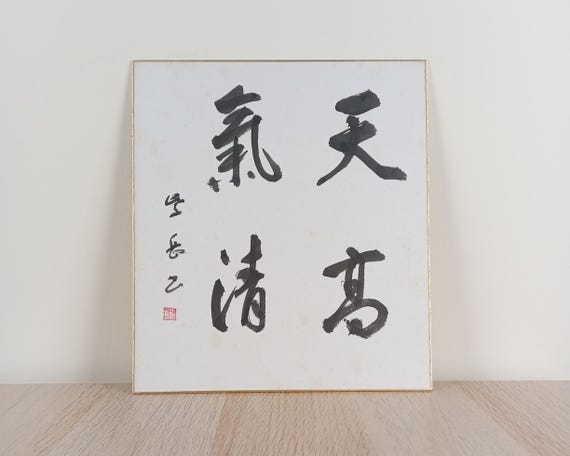 天高
氣清